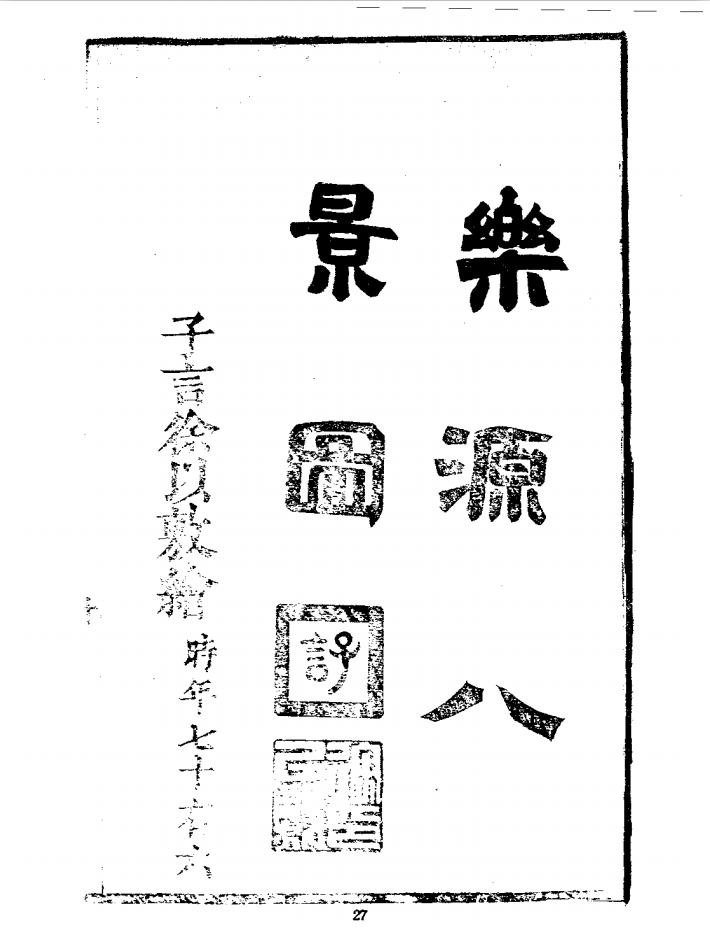 樂源八
景圖
子言徐以敷繪
時年七十有六
27